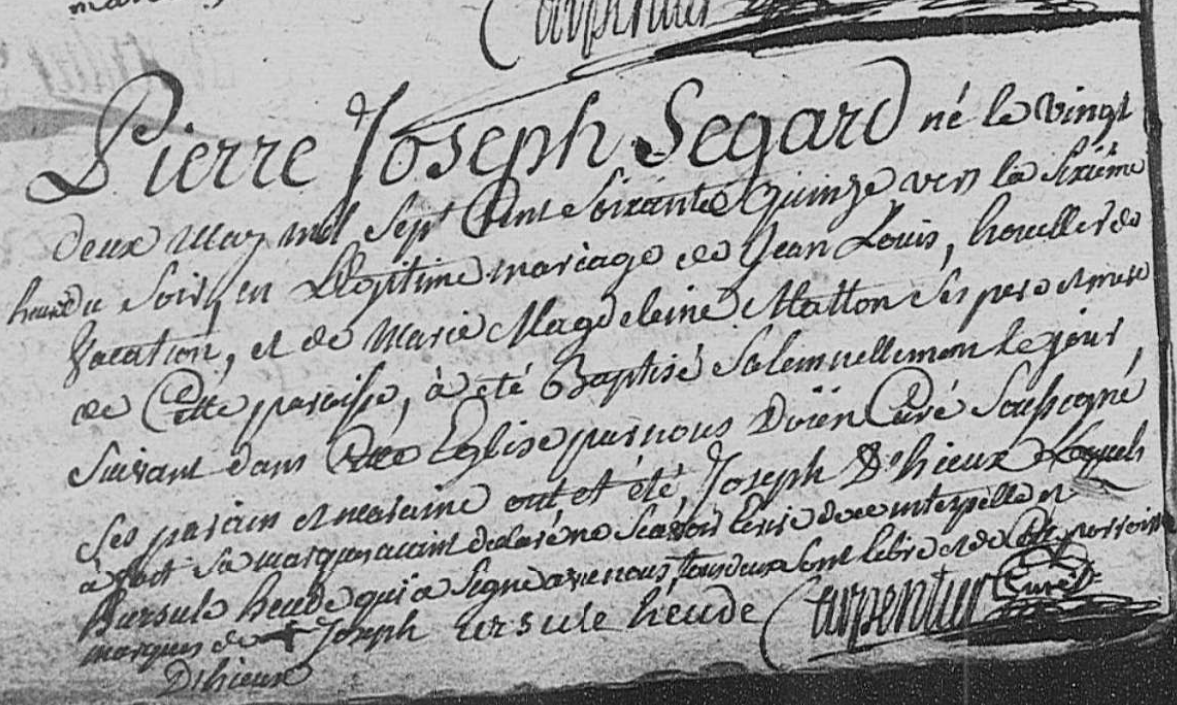 Carpentier
Pierre Joseph Segard né le vingt
deux may mil sept Cent soixante Quinze vers la sixième
heure du soir, en Legitime mariage de Jean Louis, houiller de
Vacation, et de Marie Magdeleine Matton ses pere et mere
de Cette paroisse, à été Baptisé Solemnellement le jour
suivant dans Cette Eglise par nous Doïen Curé Soussigné
ses parain et maraine ont été, Joseph D'hieux Lequel
à fait sa marque aiant declaré ne scavoir Ecrire de ce interpellé et
ursule heude qui a signé avec nous, tous deux sont libre et de Cette parroisse
marque de Joseph ursule heude Carpentier Curé
D'hieux